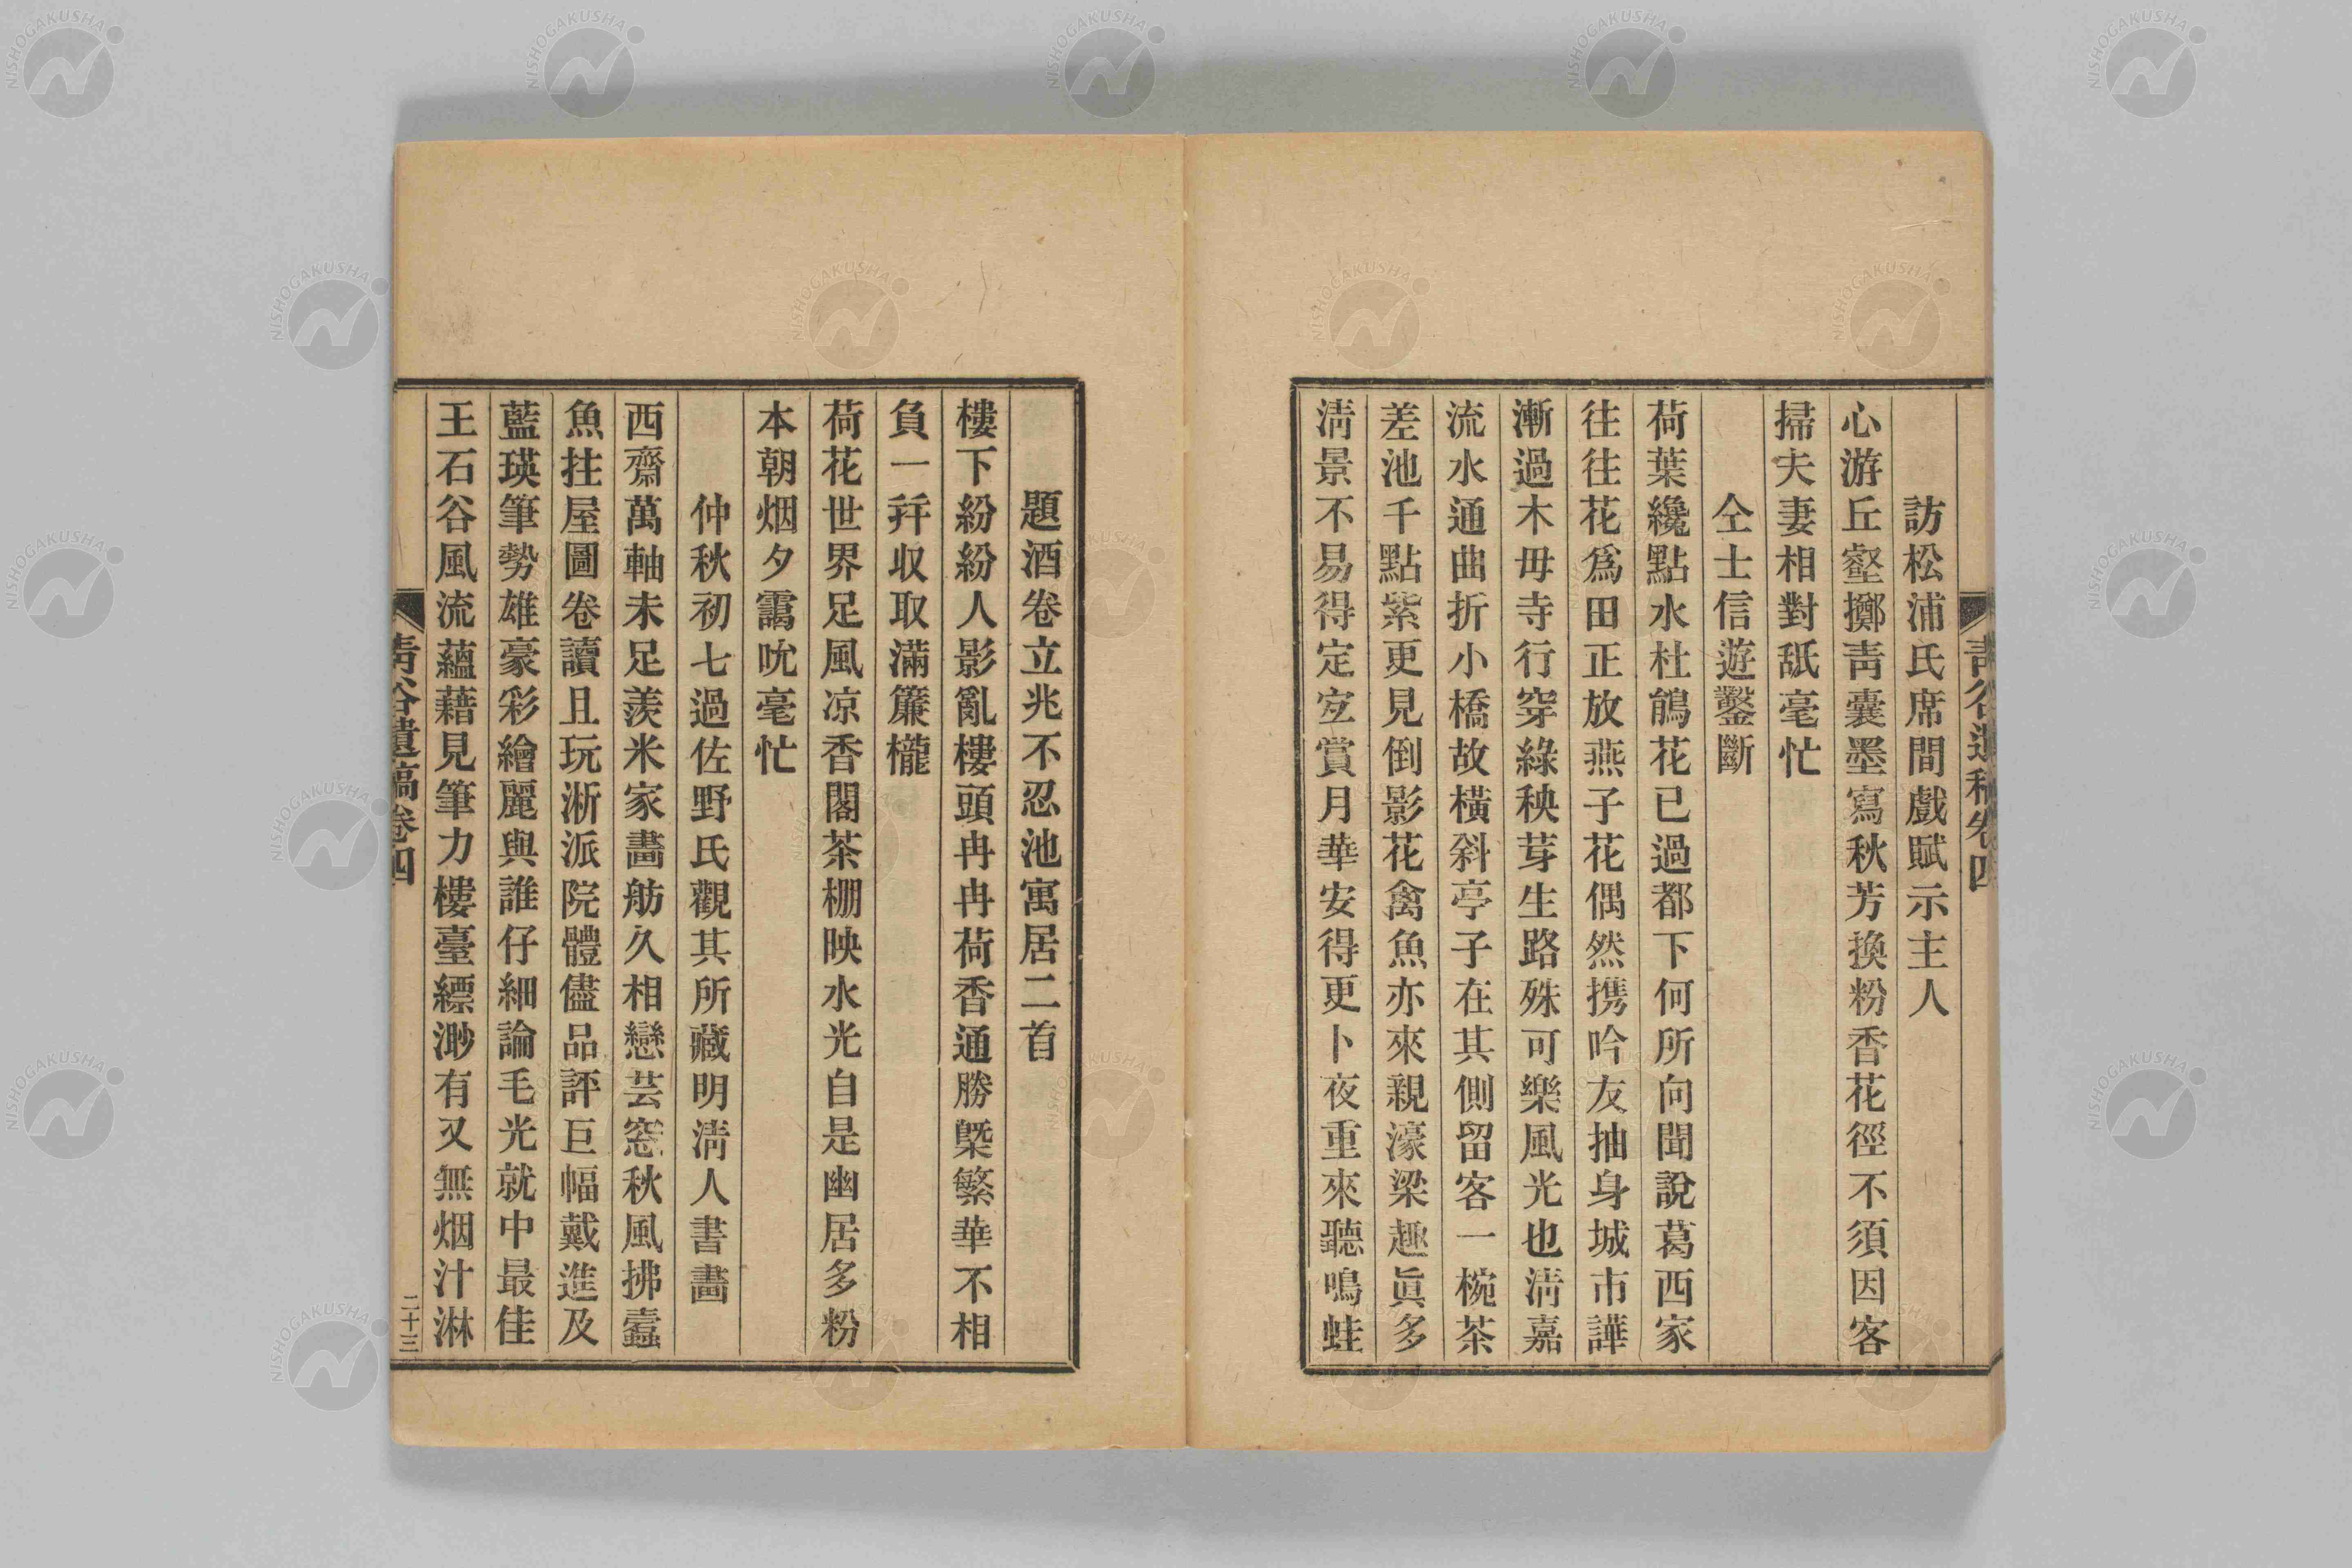 訪松浦氏席間戲賦示主人
心游丘壑擲靑囊墨寫秋芳換粉香花徑不須因客
掃夫妻相對舐毫忙
仝士信遊鑿斷
荷葉纔點水杜鵑花已過都下何所向聞說葛西家
往往花爲田正放燕子花偶然携吟友抽身城市譁
漸過木毋寺行穿綠秧芽生路殊可樂風光也淸嘉
流水通曲折小橋故橫斜亭子在其側留客一椀茶
差池千點紫更見倒影花禽魚亦來親濠梁趣眞多
淸景不易得定宐賞月華安得更卜夜重來聽鳴蛙
題酒卷立兆不忍池寓居二首
樓下紛紛人影亂樓頭冉冉荷香通勝槩繁華不相
負一幷収取滿簾櫳
荷花世界足風凉香閣茶棚映水光自是幽居多粉
本朝烟夕靄吮毫忙
仲秋初七過佐野氏觀其所藏明淸人書畫
西齋萬軸未足羨米家畵舫久相戀芸窓秋風拂蠹
魚拄屋圖卷讀且玩淅派院體儘品評巨幅戴進及
藍瑛筆勢雄豪彩繪麗與誰仔細論毛光就中最佳
王石谷風流蘊藉見筆力樓臺縹渺有又無烟汁淋
靑谷遺稿卷四
二十三
NISHOGAKUSHA